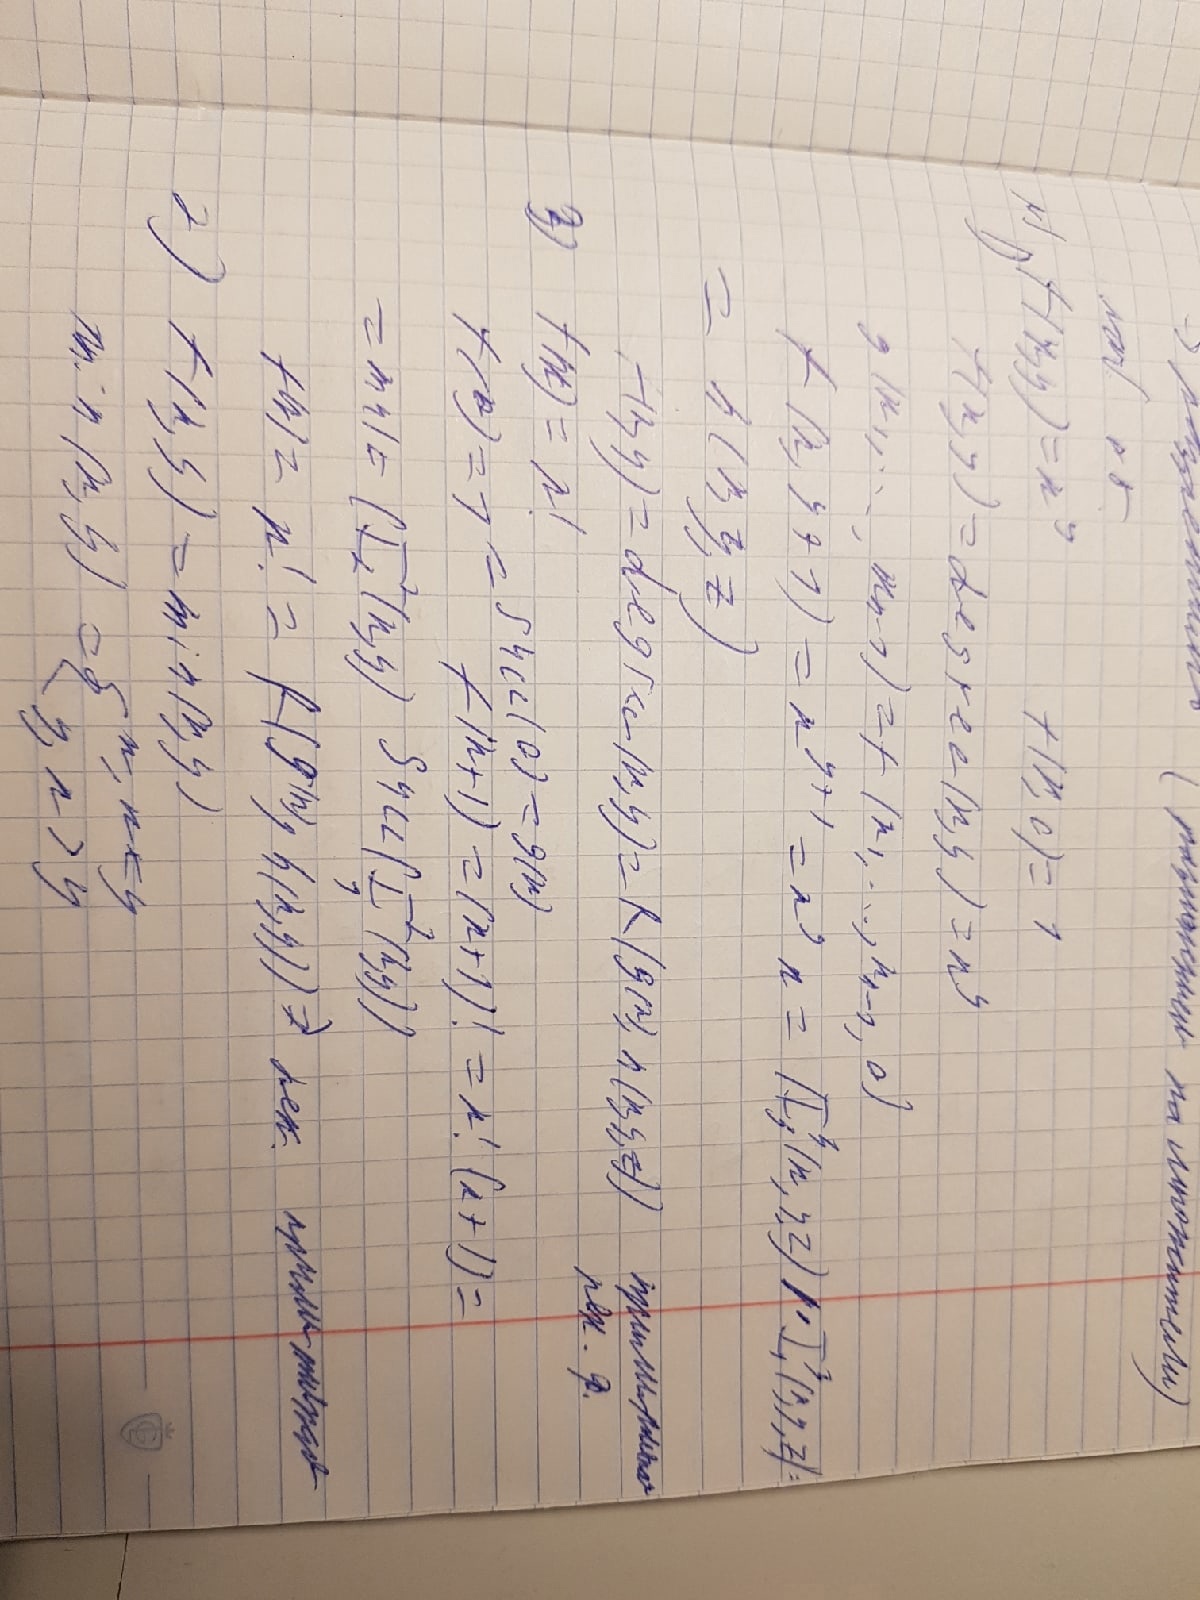 → разрешимо (разложением на множители)
№1 1) f(x,y) = x^y f(x,0) = 1
f(x,y) = degree(x,y) = x^y
g(x₁,..., xₙ₋₁) = f(x₁,...,xₙ₋₁,0)
f(x,y+1) = x^{y+1} = x^y x = (I₃³(x,y,z) · I₁³(x,y,z)) =
= h(x,y,z)
f(x,y) = degree(x,y) = R(g(x), h(x,y,z)) примитивная
рек. ф.
3) f(x) = x!
f(0) = 1 = Succ(0) = g(x)
f(x+1) = (x+1)! = x! (x+1) =
= mul = (I₂²(x,y) Succ(I₁²(x,y))
f(x) = x! = R(g(x), h(x,y)) ⇒ рек. примитивная
2) f(x,y) = min(x,y)
min(x,y) = { x, x ≤ y
y, x > y